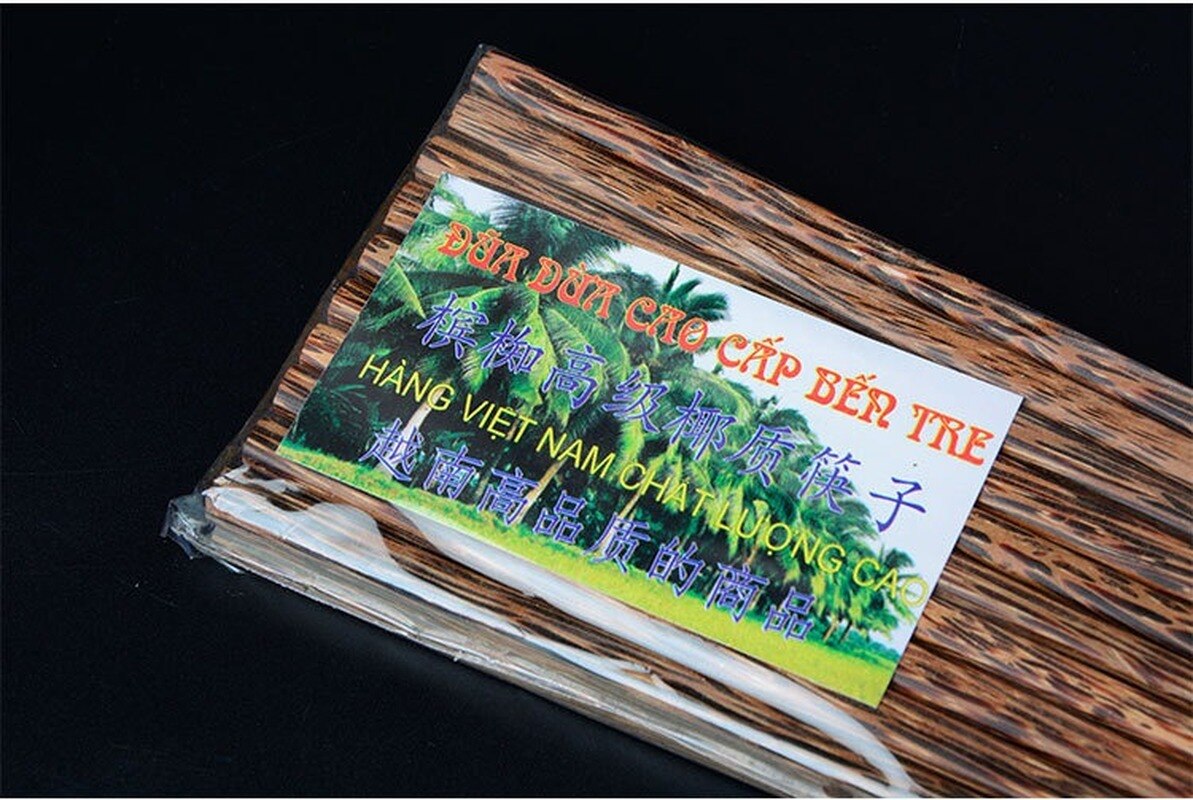 ĐŨA DỪA CAO CẤP BẾN TRE
槟椥高级椰质筷子
HÀNG VIỆT NAM CHẤT LƯỢNG CAO
越南高品质的商品